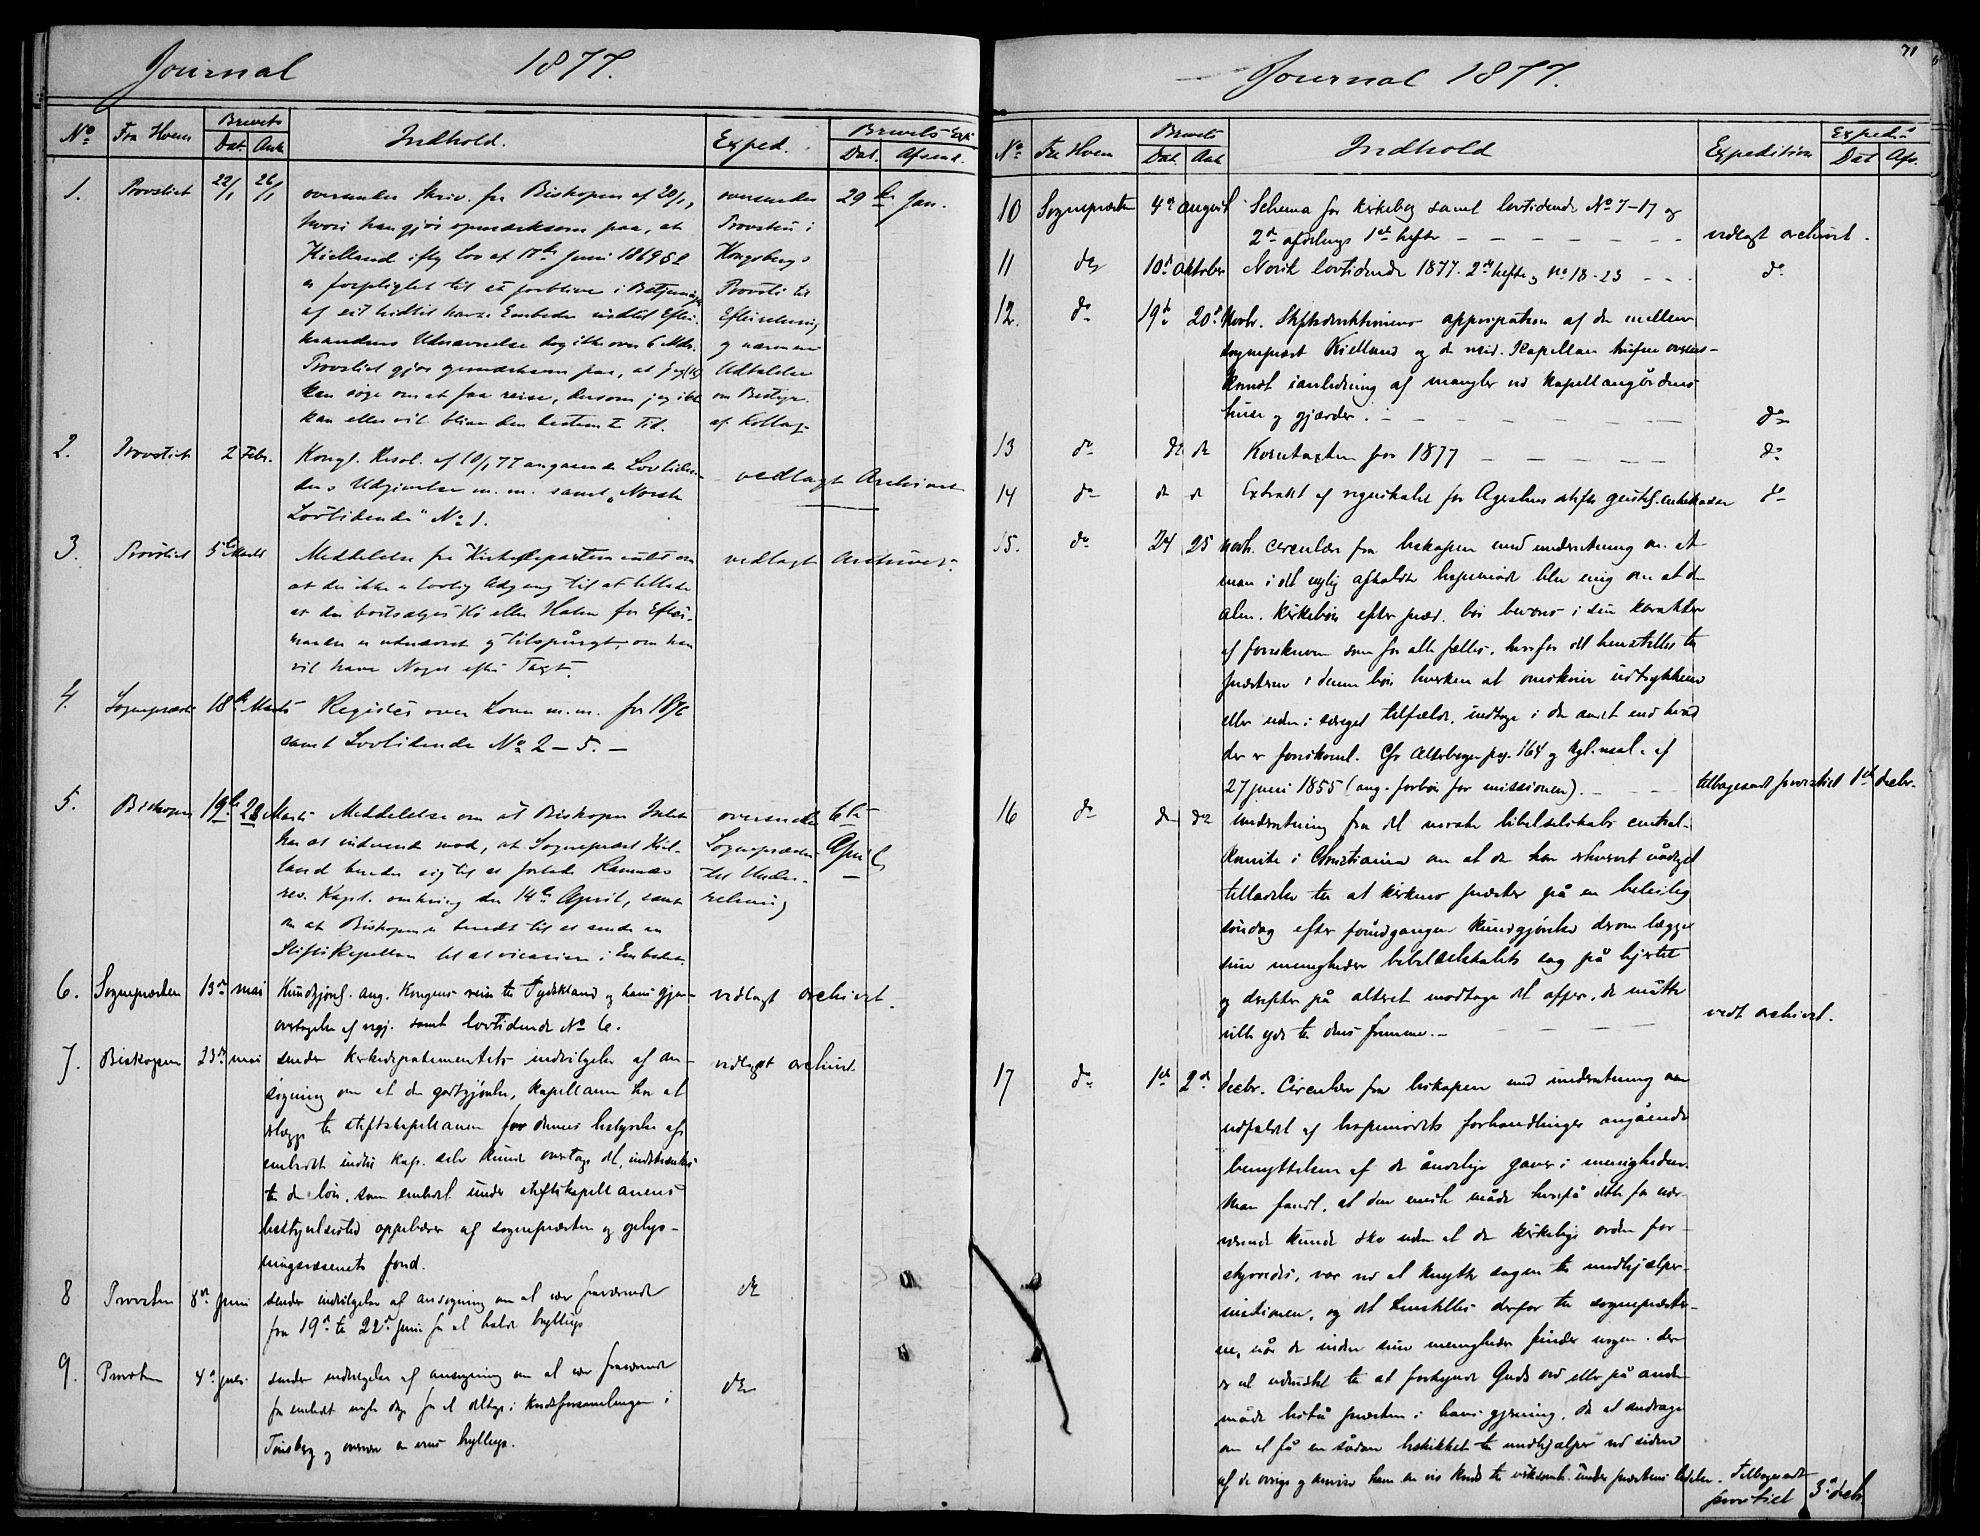 Journal 1877.
No Fra Hvem Brevets Dat. Ank. Indhold. Exped. Brevets Exp. Dat. Afsend.
1. Provstiet 22/1 26/1 oversender Skriv. fra Biskopen af 20/1, oversendes 29de Jan.
hvori han gjør opmærksom paa, at Provsten i
Kielland iflg Lov af 12te Juni 1869 § 2 Kongsbergs
er forpligtet til at forblive i Betjeningen Provsti til
af sit hidtil havte Embede indtil Efter- Efterretning
mandens Udnævnelse dog ikke over 6 Mdr. og nærmere
Provstiet gjør opmærksom paa, at jeg Udtalelse
kan søge om at faa reise, dersom jeg ikke om Bestyr.
kan eller vil blive den bestemte Tid. af Kollog.
2. Provstiet 2 Febr. Kongl. Resol. af 10/1 77 angaaende Lovtiden-
des Udgivelse m. m. samt „Norsk vedlagt Archivet
Lovtidende" No 1.
3. Provstiet 5te Marts Meddelelse fra Kirkedepartementet om vedlagt Archivet.
at der ikke er lovlig Adgang til at tillade
at der bortsælges Hø eller Halm før Efter-
manden er udnævnt og tilspurgt, om han
vil have Noget efter Taxt.
4. Sognepræsten 18de Marts Register over Love m. m. for 1876
samt Lovtidende No 2 – 5. –
5. Biskopen 19de 28 Marts Meddelelse om at Biskopen Intet oversendt 6te
har at indvende mod, at Sognepræst Kiel- Sognepræsten April
land bereder sig til at forlade Ramnæs til Under-
res. Kapt. omkring den 14de April, samt retning
om at Biskopen er beredt til at sende en
Stiftskapellan til at vicariere i Embedet.
6. Sognepræsten 13de mai Kundgjørels. ang. Kongens reise til Tydskland og hans gjen- vedlagt archivet.
overtagelse af regj. samt lovtidende No 6.
7. Biskopen 23de mai sender kirkedepartementets indvilgelse af an- vedlagt archivet.
søgning om at den godtgjørelse, kapellanen har at
erlægge til stiftskapellanen for dennes bestyrelse af
embedet indtil kap. selv kunde overtage det, indskrænkes
til den løn, som embedet under stiftskapellanens
bestyrelsestid oppebærer af sognepræsten og oplys-
ningsvæsenets fond.
8 Provsten 8de juni sender indvilgelse af ansøgning om at være fraværende do
fra 19de til 22de juni for at holde bryllup
9. Provsten 4de juli sender indvilgelse af ansøgning om at være fraværende do
fra embedet nogle dage for at deltage i Kredsforsamlingen i
Tønsberg og overvære en vens bryllup.
Journal 1877.
71
No Fra Hvem Brevets Dat. Ank. Indhold Expedition Exped. Dat Afs.
10 Sognepræsten 4de august Schema for kirkebog samt lovtidende No 7–17 og
2den afdelings 1ste hefte – – – vedlagt archivet.
11 do 10de oktober Norsk lovtidende 1877. 2det hefte, No 18–23 – – do
12. do 19de 20de Novbr. Stiftsdirektionens approbation af den mellem
sognepræst Kielland og den res. Kapellan trufne overens-
komst i anledning af mangler ved kapellangårdens
huse og gjærder. – – do
13 do do do Korntaxten for 1877 – – do
14 do do do Extrakt af regnskabet for Agershus stifts geistl. enkekasse do
15. do 24 25 novb. circulær fra biskopen med underretning om at
man i det nylig afholdte bispemøde blev enig om at den
alm. kirkebøn efter præd. bør bevares i sin karakter
af foreskreven som for alle fælles, hvorfor det henstilles til
præsterne i denne bøn hverken at omskrive udtrykkene
eller uden i særeget tilfælde indtage i den andet end hvad
der er foreskrevet. Cfr. Alterbogen pag. 164 og kgl. resol. af
27 juni 1855 (ang. forbøn for missionen). – tilbagesendt provstiet 1ste decbr.
16 do do do underretning fra det norske bibelselskabs central-
komite i Christiania om at der har erhvervet nådigst
tilladelse til at kirkens præster på en beleilig
søndag efter foregangen kundgjørelse derom lægge
sine menigheder bibelselskabets sag på hjertet
og derefter på alteret modtage det offer, de måtte
ville yde til dens fremme. – – vedl. archivet.
17 do 1ste 2den decbr. Circulær fra biskopen med underretning om
udfaldet af bispemødets forhandlinger angående
benyttelsen af de åndelige gaver i menigheden.
Man fandt, at den eneste måde hvorpå dette for nær-
værende kunde ske uden at den kirkelige orden for-
styrredes, var ved at knytte sagen til medhjælper-
institutionen, og det henstilles derfor til sognepræster-
ne, når de inden sine menigheder finder nogen, der
er vel udrustet til at forkynde Guds ord eller på anden
måde bistå præsten i hans gjerning, da at andrage
om at få en sådan beskikket til medhjælper ved siden
af de øvrige og anvise ham en vis kreds til virksomh. under præstens ledelse. Tilbagesendt
provstiet 3die decbr.